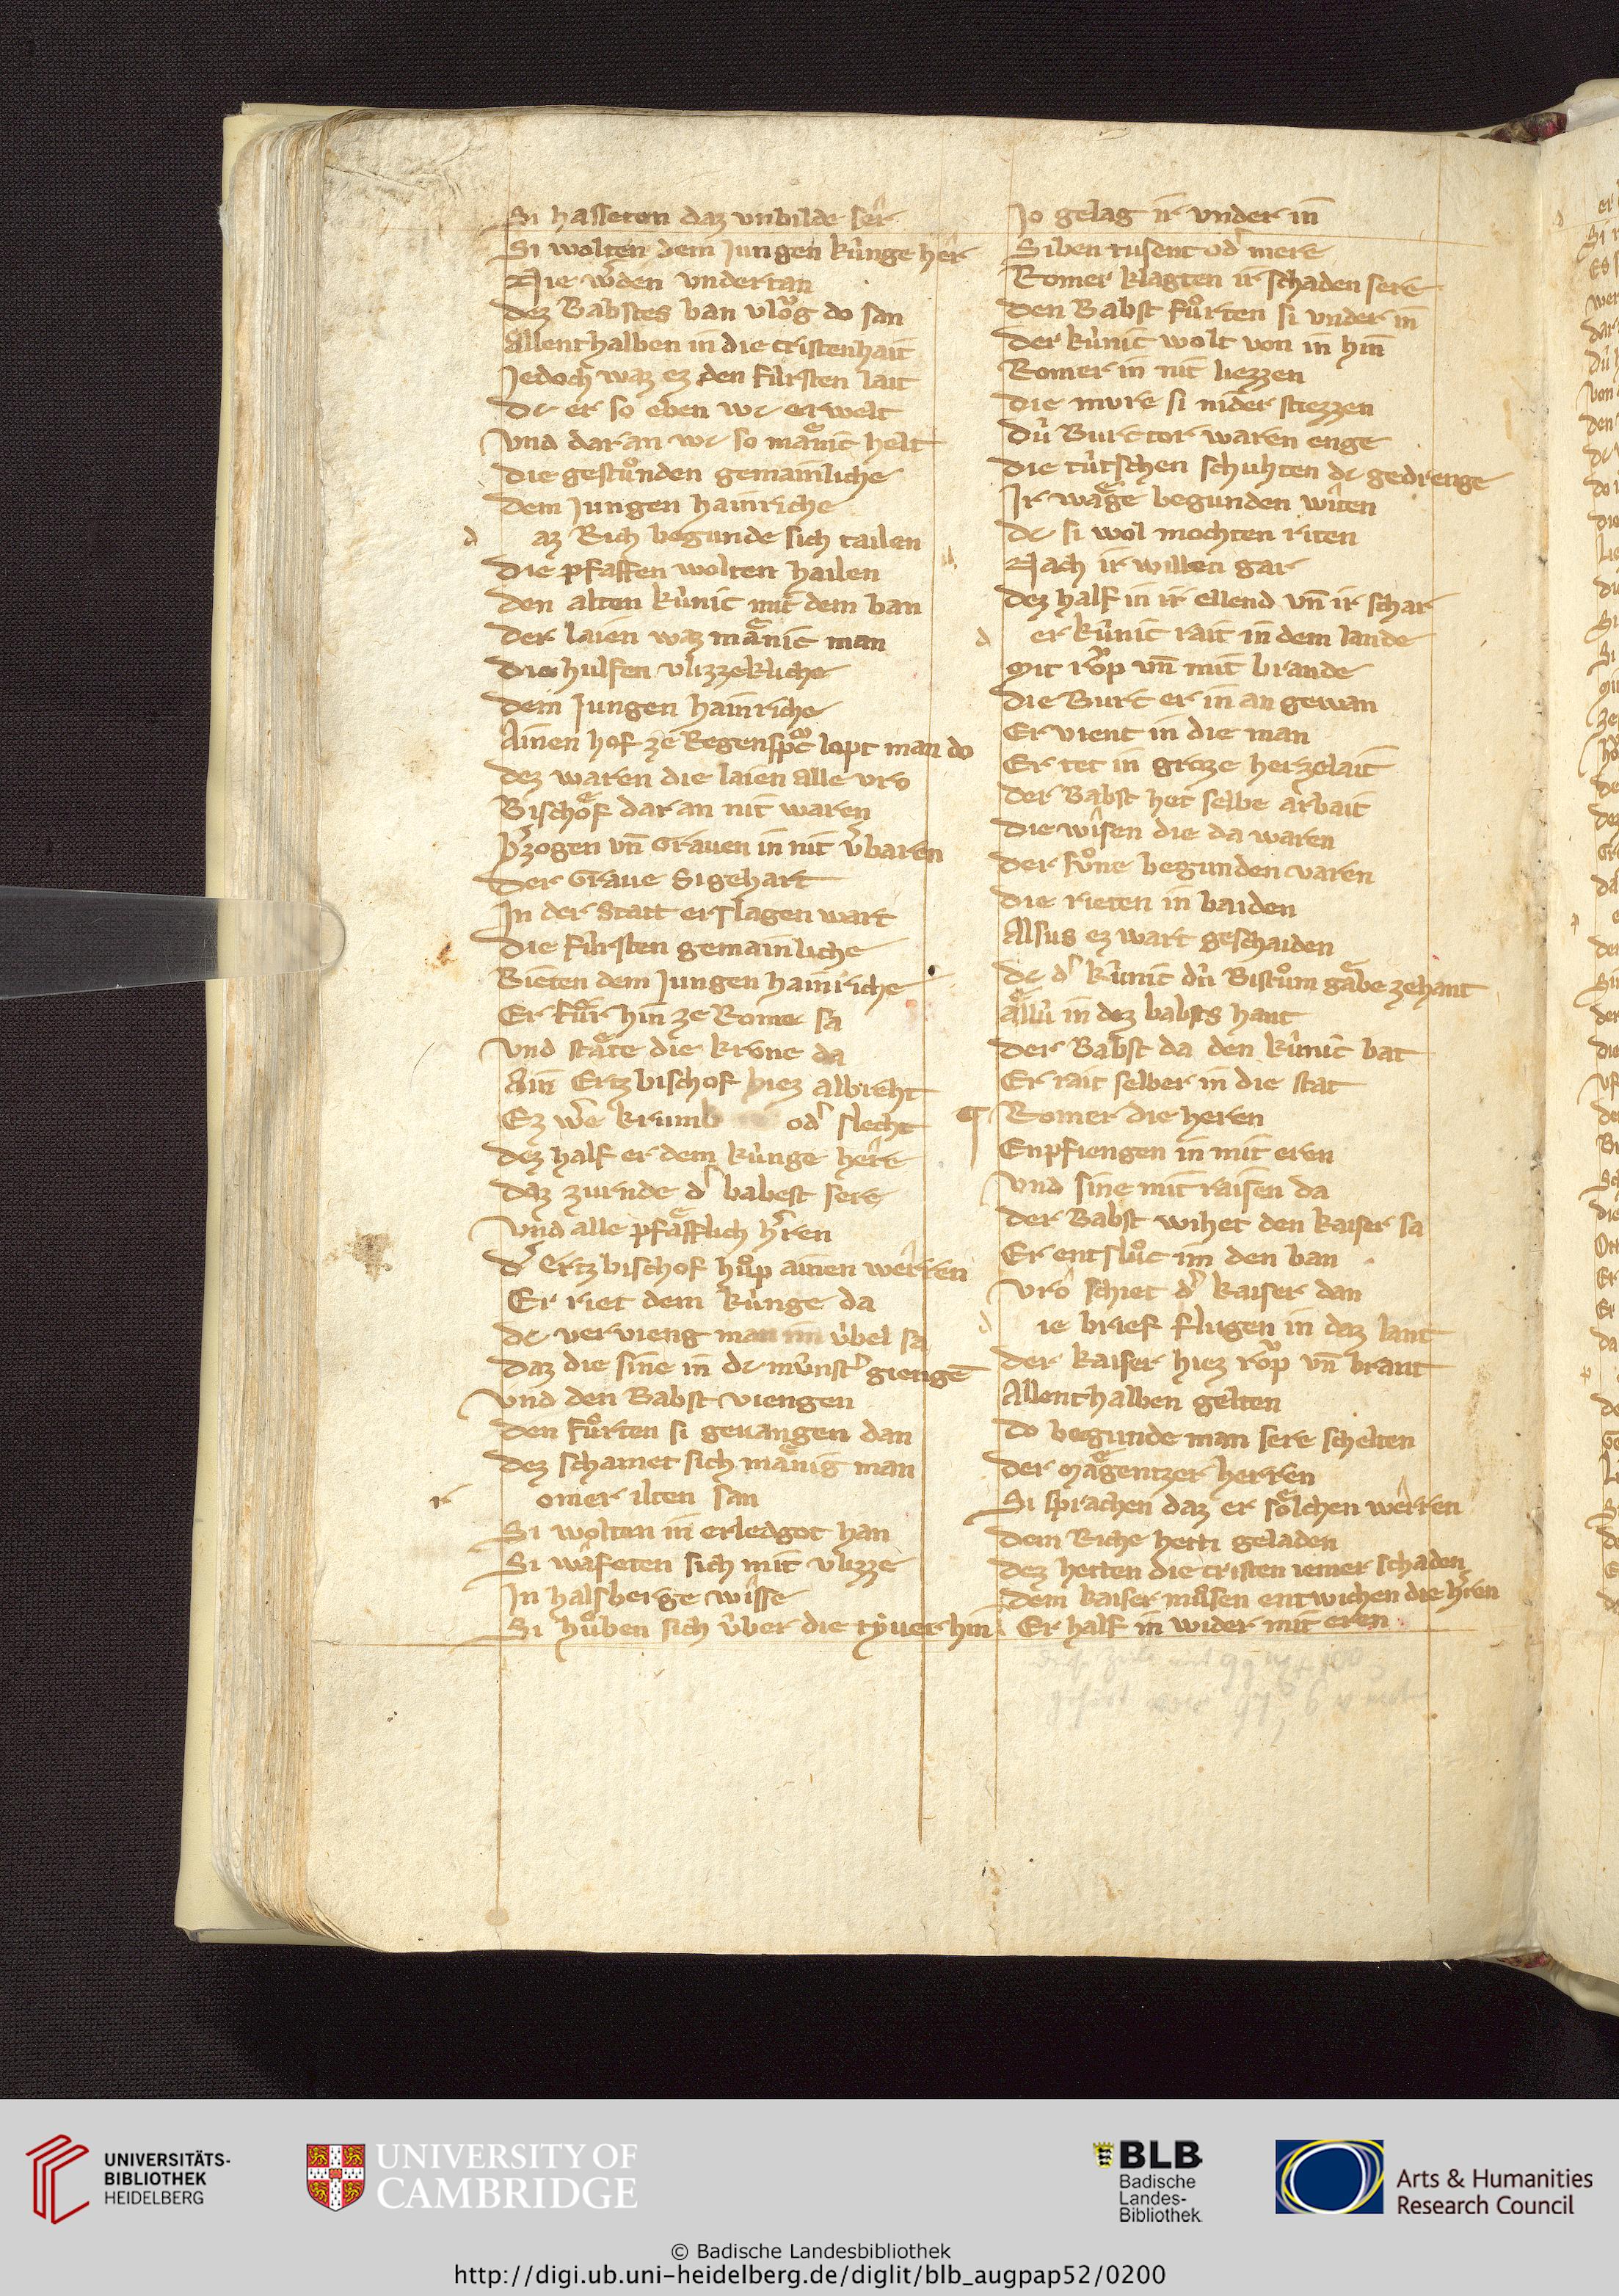 Si hasseten daz vnbilde ser
Si wolten dem Jungen kúnge her
Nie wͤden vndertan
dez Babstes ban vlog do san
Allenthalben in die cristenhait
Jedoch waz ez den fúrsten lait
dc er so eben wc erwelt
Vnd dar an wc so mänic helt
die gestůnden gemainliche
dem Jungen hainriche
d az Rich begunde sich tailen
Die pfaffen wolten hailen
den alten kúnic mit dem ban
der laien waz mänic man
die hulfen vlizzekliche
dem Jungen hainriche
Ainen hof ze Regenspᵒc lopt man do
dez waren die laien alle vro
Bischöf dar an nit waren
hͤzogen vn̄ Grauen in nit v͛baren
Der Graue Sigehart
In der Statt erslagen wart
die fúrsten gemainliche
Rieten dem Jungen hainriche
Er fůr hin ze Rome sa
Vnd stäte die krone da
Ain Ertzbischof hiez albreht
Ez wͤe krumb od͛ slecht
dez half er dem kúnge here
daz zurnde d͛ babest sere
Vnd alle pfäfflich hͤren
d͛ Ertzbischof hůp ainen werren
Er riet dem kúnge da
dc vervieng man im úbel sa
daz die sine in dc múnst͛ giengē
Vnd den Babst viengen
den fůrten si geuangen dan
dez schamet sich mänig man
r omer ilten san
Si wolten in erledgot han
Si wafeten sich mit vlizze
In halsberge wisse
Si hůben sich úber die tyuer hin
Jo gelag ir vnder in
Siben tusent od͛ mere
Romer klagten ir schaden sere
den Babst fůrten si vnder in
der kúnic wolt von in hin
Romer in nit liezzen
die mvre si nider stiezzen
dú Burctor waren enge
die tútschen schuhten dc gedrenge
Ir wäge begunden witen
dc si wol mochten riten
Nach ir willen gar
dez half in ir ellend vn̄ ir schar
d er kúnic rait in dem lande
Mit rop vn̄ mit brande
die Burc er in an gewan
Er vient in die man
Er tet in groze herzelait
der Babst het selbe arbait
Die wisen die da waren
der sůne begunden varen
die rieten in baiden
Alsus ez wart geschaiden
dc d͛ kúnic dú Bistům gäbe zehant
ällú in dez babsts hant
der Babst da den kúnic bat
Er rait selber in die stat
Romer die heren
Enpfiengen in mit eren
Vnd sine mit raisen da
der Babst wihet den kaiser sa
Er entslůc im den ban
Vro schiet d͛ kaiser dan
d ie brief flugen in daz lant
der kaiser hiez rop vn̄ brant
Allenthalben gelten
do begunde man sere schelten
der Mägentzer herren
Si sprachen daz er sölchen werren
dem Riche hetti geladen
dez hetten die cristen iemer schaden
dem kaiser můsen entwichen die hͤren
Er half in wider mit eren
UNIVERSITÄTS-
BIBLIOTHEK
HEIDELBERG
UNIVERSITY OF
CAMBRIDGE
BLB
Badische
Landes-
Bibliothek
Arts & Humanities
Research Council
© Badische Landesbibliothek
http://digi.ub.uni-heidelberg.de/diglit/blb_augpap52/0200